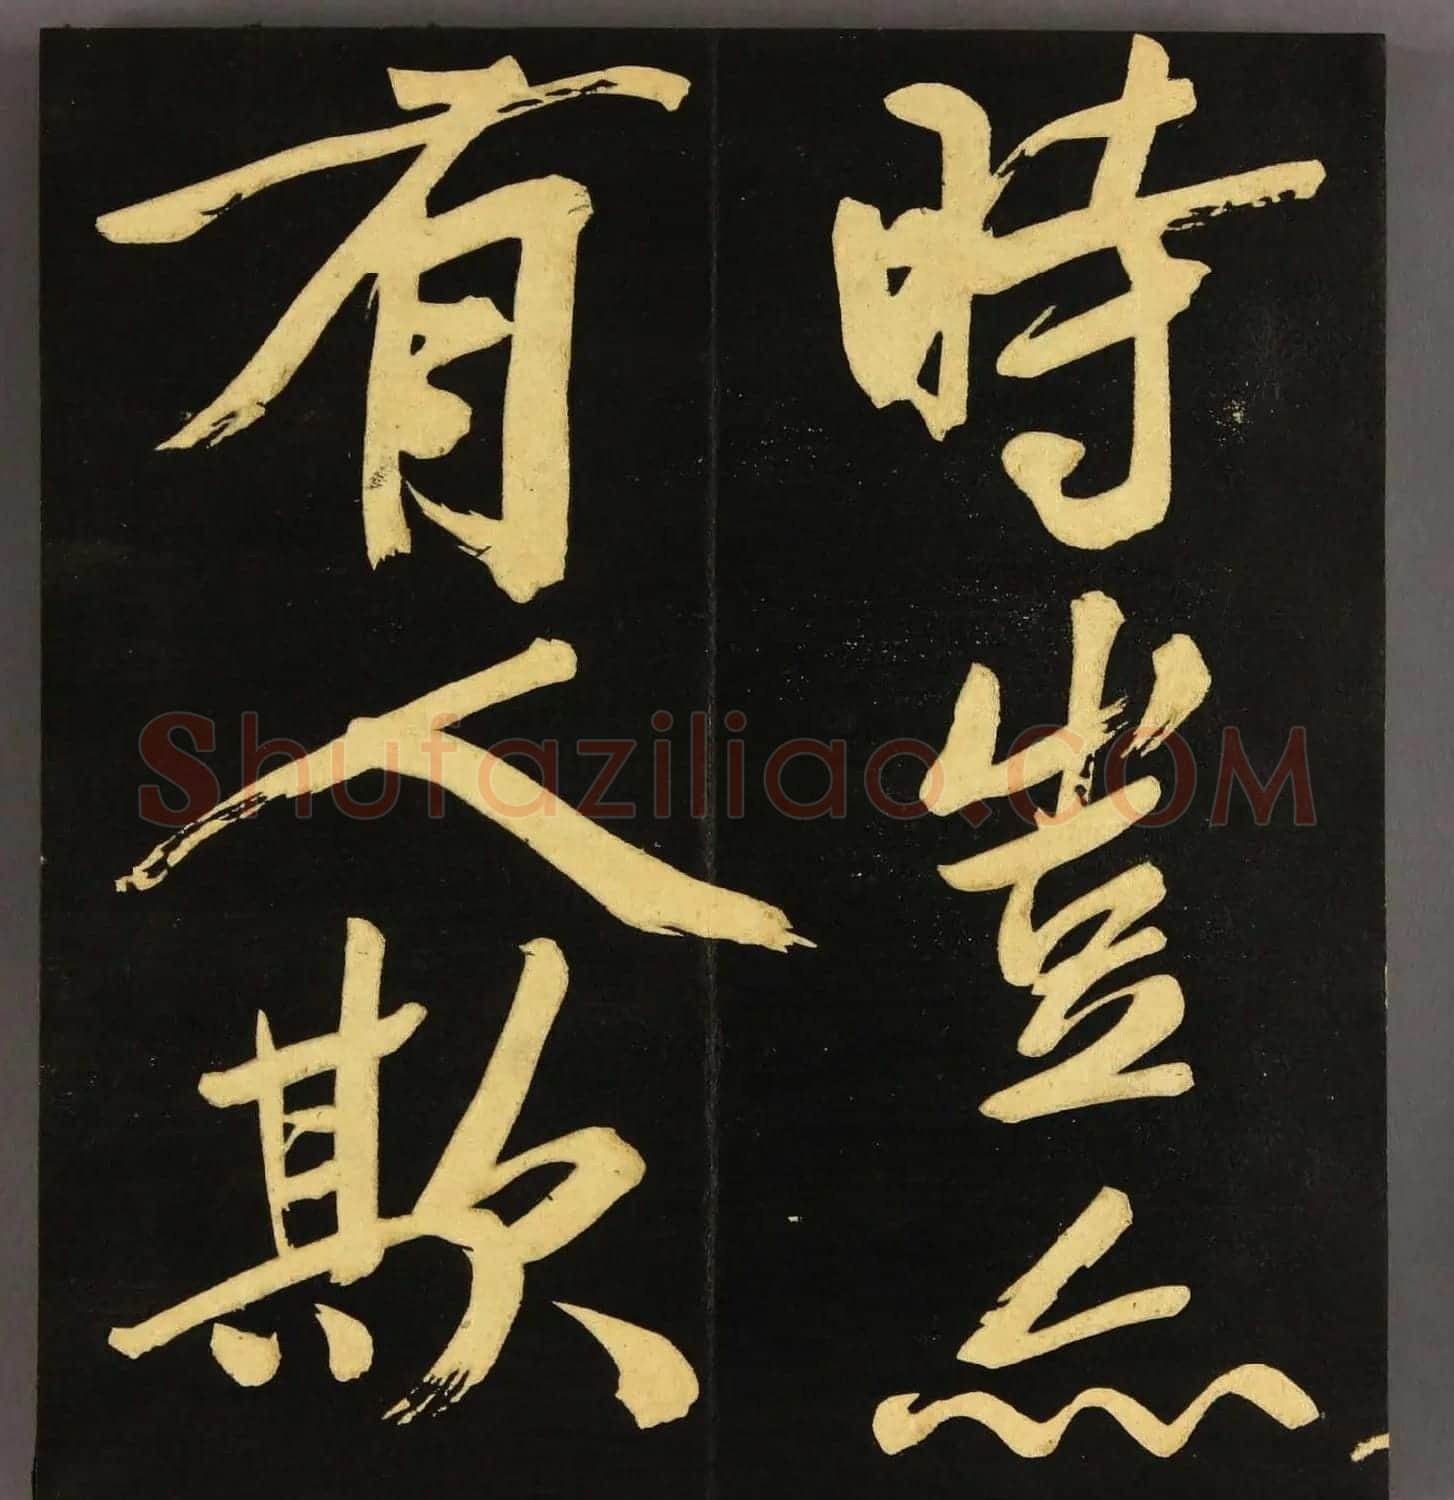 時豈亦
有人歟
Shufaziliao.COM